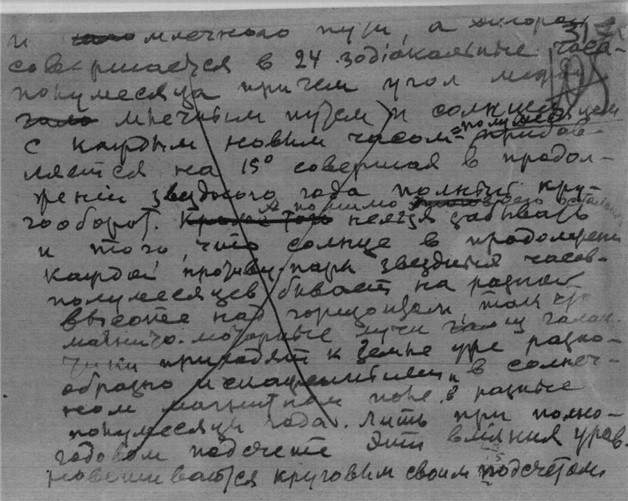 и млечного пути, а
совершается в 24 зодіакальные часа-
полумесяца причем угол между
гало млечным путем и солнцем
с каждым новым часом-полумесяцем
ляется на 15° совершая в продол-
женіи звездного года полный кру-
гооборот. Кроме того помимо нельзя забывать
и того, что солнце в продолжени
каждой пары звездных часов-
полумесяцев бывает на разной
высоте над горизонтом, так что
лучи из галак-
тики приходят к земле уже разно-
образно и в солнеч-
ном магнитном поле в разные
полумесяцы года. Лишь при полно-
годовом подсчете эти влияния урав-
новешиваются круговым своим подсчетом.